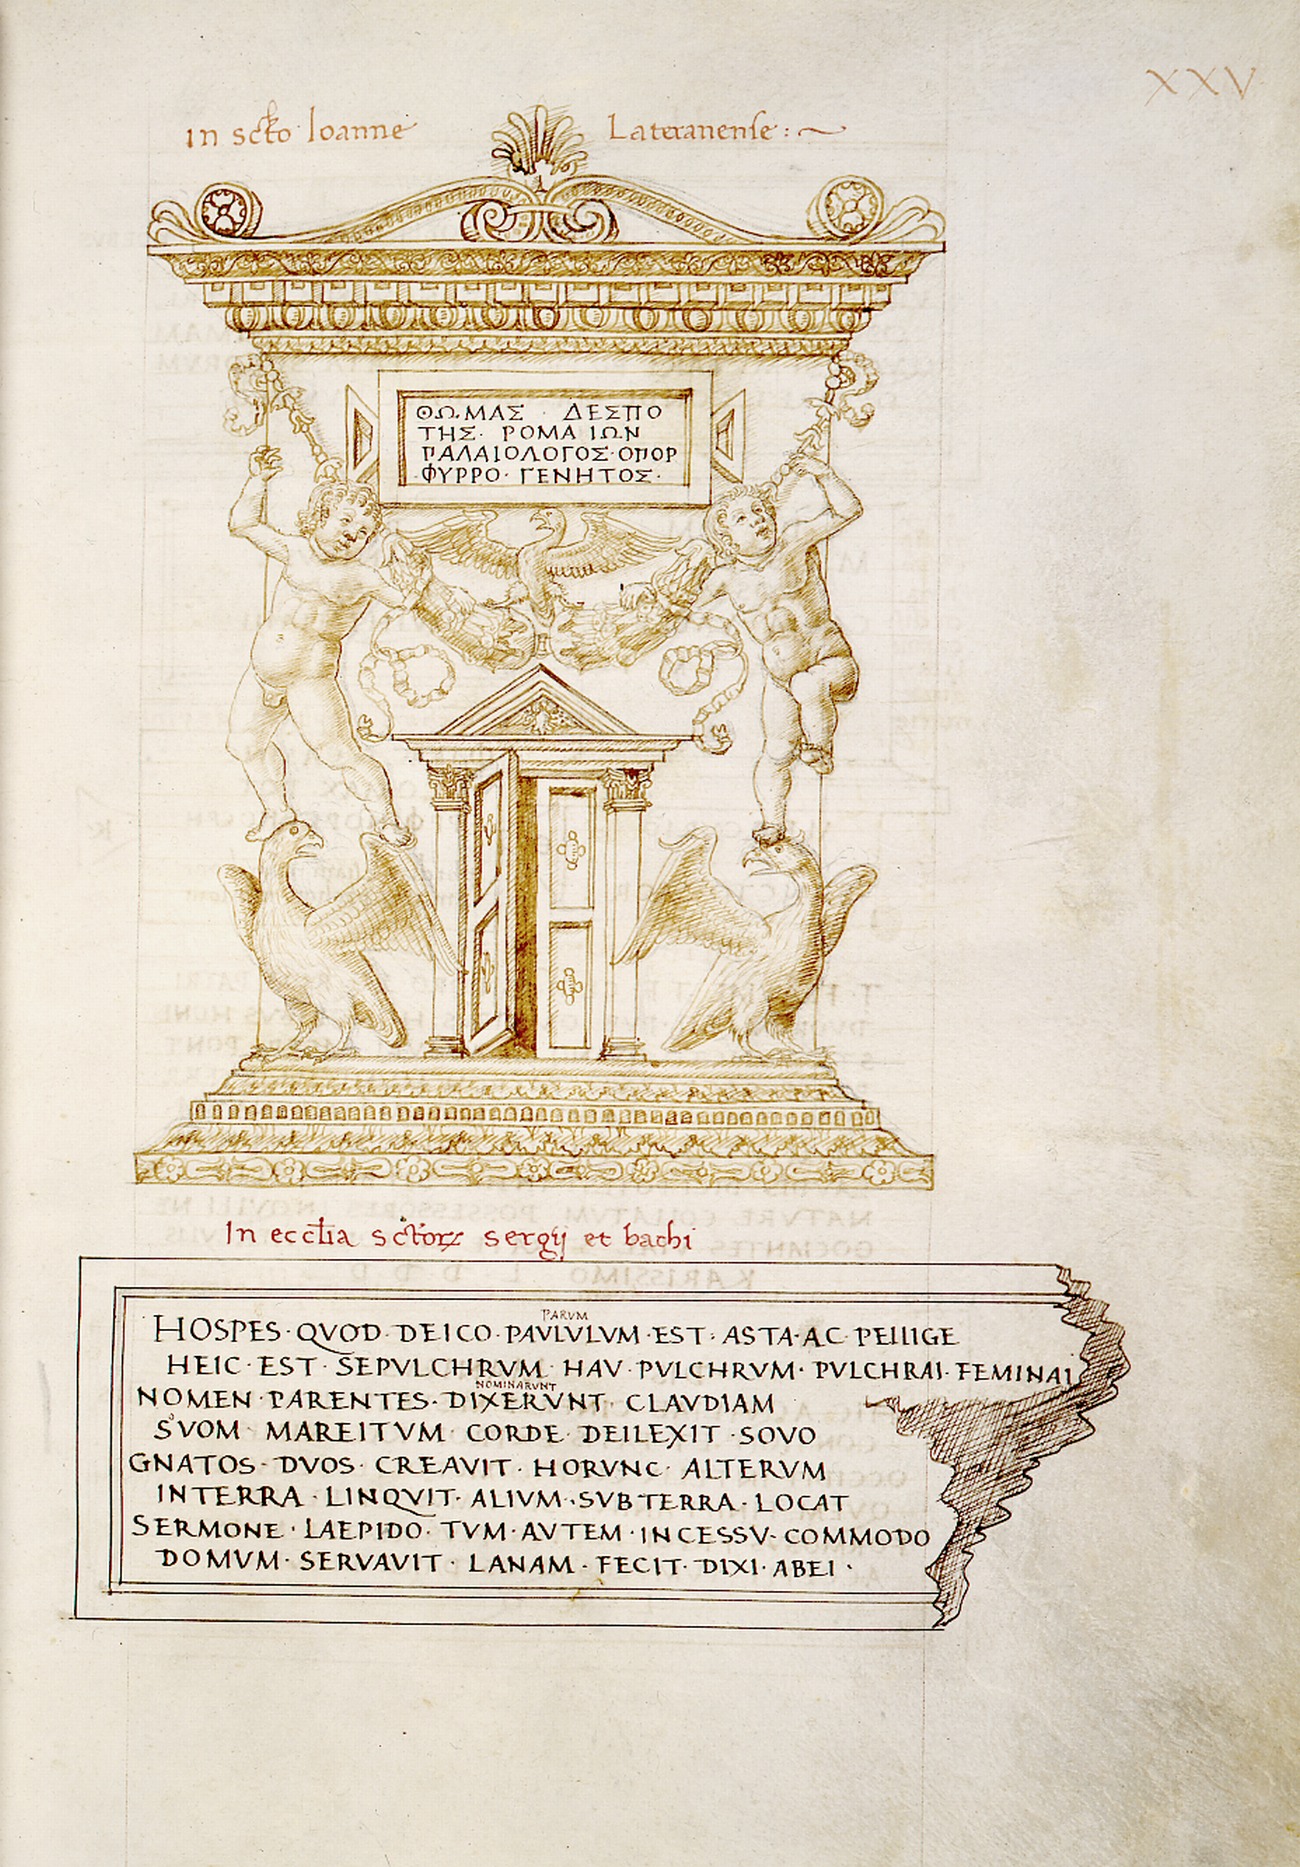 XXV
in scto Ioanne Lateranense :~
ΘΩΜΑΣ · ΔΕΣΠΟ
ΤΗΣ · ΡΟΜΑΙΩΝ
ΠΑΛΑΙΟΛΟΓΟΣ · ΟΠΟΡ
·ΦΥΡΡΟ · ΓΕΝΗΤΟΣ ·
In ecclia sctorꝝ sergij et bachi
PARVM
HOSPES · QVOD · DEICO · PAVLVLVM · EST · ASTA · AC · PELLIGE
HEIC · EST · SEPVLCHRVM · HAV · PVLCHRVM · PVLCHRAI · FEMINAI
NOMINARVNT
NOMEN · PARENTES · DIXERVNT · CLAVDIAM
SoVOM · MAREITVM · CORDE · DEILEXIT · SOVO
GNATOS · DVOS · CREAVIT · HORVNC · ALTERVM
INTERRA · LINQVIT · ALIVM · SVBTERRA · LOCAT
SERMONE · LAEPIDO · TVM · AVTEM · INCESSV · COMMODO
DOMVM · SERVAVIT · LANAM · FECIT · DIXI · ABEI ·